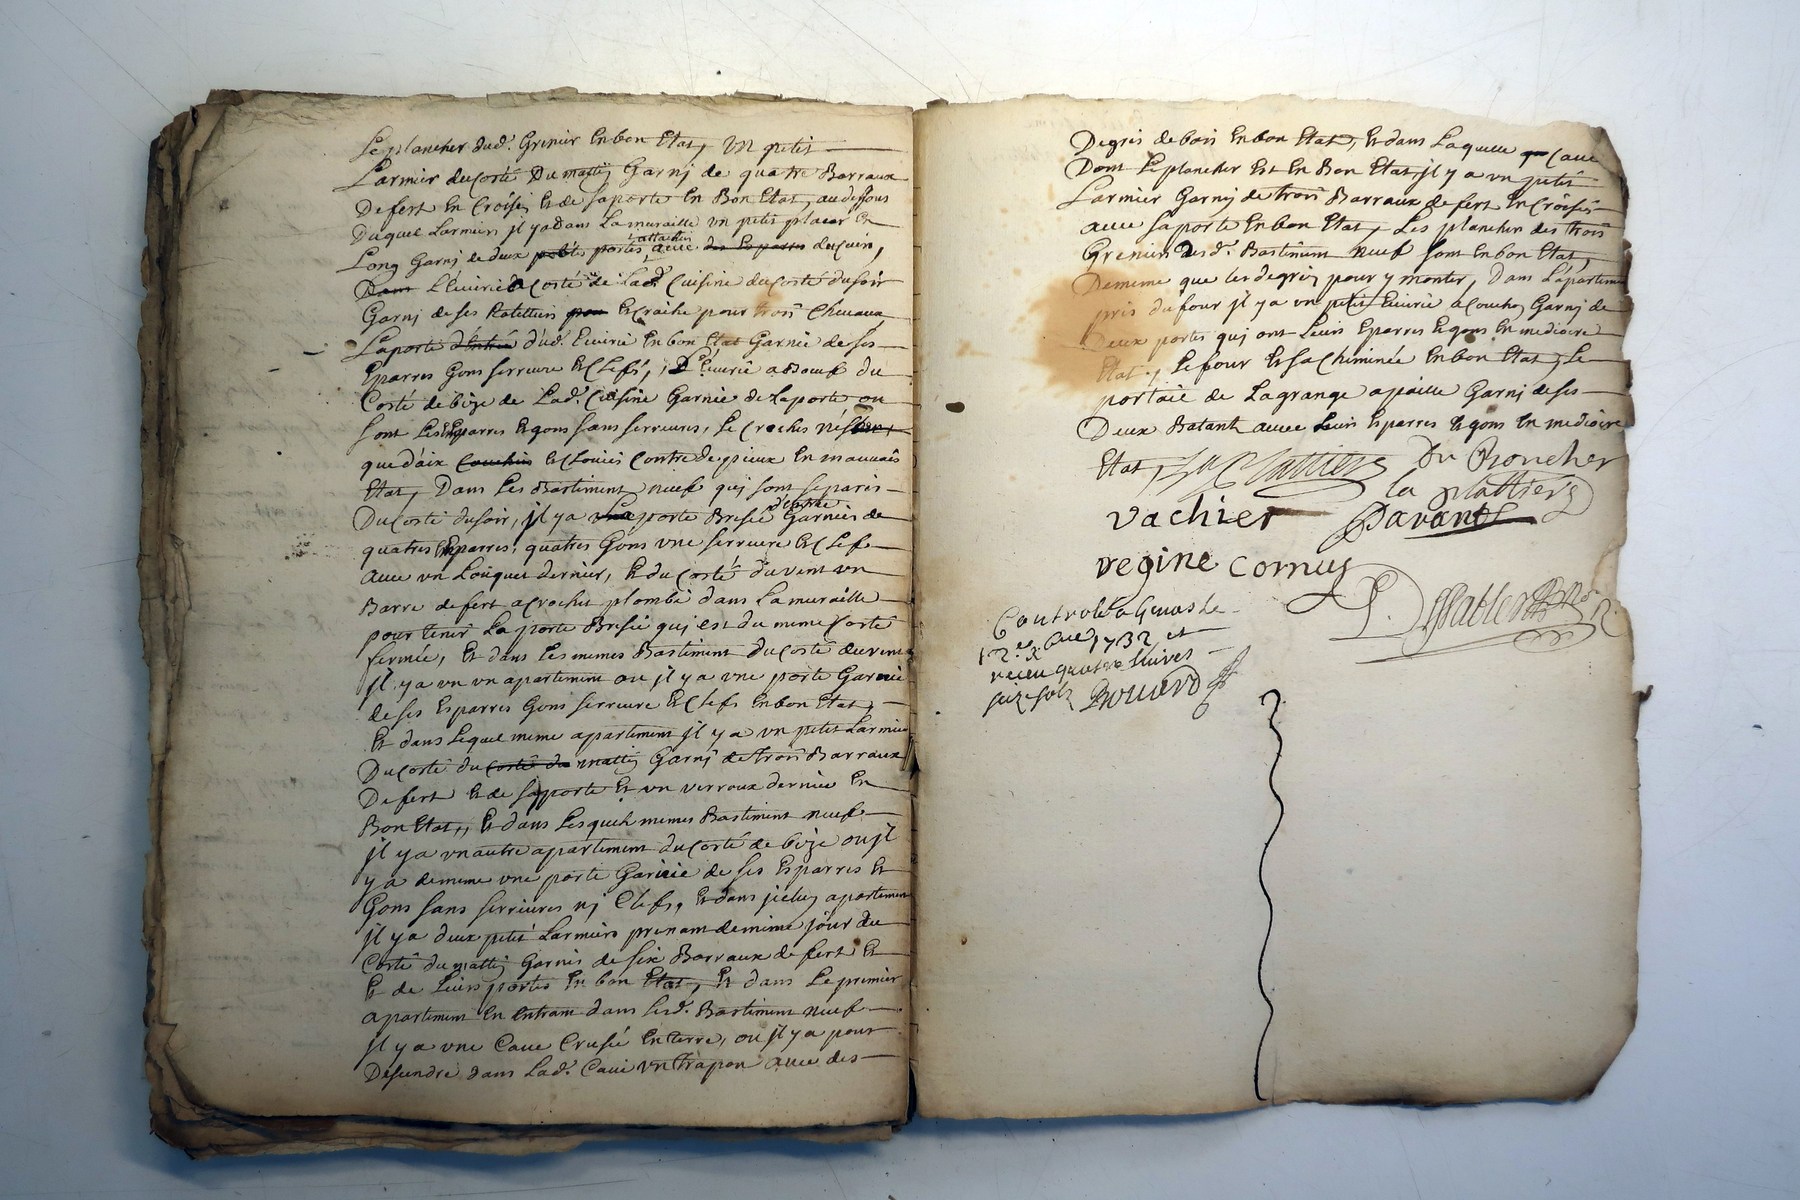 Le plancher dud. Grenier En bon Etat, un petit
Larmier du Costé Du mattin Garnj de quatre Barraux
De fert En Croisée Et de sa porte En Bon Etat, au dessous
Duquel Larmier jl y a dans La muraille un petit placar En
Long Garnj de deux portes attachées avec du cuir,
L'Ecurie a Costé de Lad. Cuisine du Costé du soir
Garnj de ses Rateliers Et Craiche pour trois Chevaux
La porte dud. Ecurie En bon Etat Garnie de ses
Eparres Gons serreure Et Clefs, L'Ecurie a Boeuf du
Costé de bize de Lad. Cuisine Garnie de La porte ou
sont Les Eparres Et gons sans serreures, Le Creches
que d'aix Et Clouées Contre des pieux En mauvais
Etat, Dans Les Bastiment neuf quj sont separés
Du Costé du soir, jl y a une porte Brisée d'entrée Garnies de
quatres Esparres, quatres Gons une serreure Et Clef
avec un Louquet dernier, Et du Costé du vent un
Barre de fert a Crochet plombé dans La muraille
pour tenir La porte Brisée quj est du meme Costé
fermée, Et dans Les memes Bastiment du Costé du vent
jl y a un un apartement ou jl y a une porte Garnie
de ses Esparres Gons serreure Et Clefs En bon Etat,
Et dans Lequel meme apartement jl y a un petit Larmier
Du Costé du mattin Garnj de trois Barraux
De fert Et de sa porte Et un verroux dernier En
Bon Etat,, Et dans Lesquels memes Bastiment neuf
jl y a un autre apartement du Costé de bize ou jl
y a de meme une porte Garnie de ses Esparres Et
Gons sans serrures nj Clefs, Et dans jceluy apartement
jl y a deux petit Larmiers prenant de meme jour du
Costé du mattin Garnis de six Barraux de fert Et
Et de Leurs portes En bon Etat, Et dans Le premier
apartement En entrant dans Lesd. Bastiment neuf
jl y a une Cave Crusée En terre, ou jl y a pour
Desendre dans Lad. Cave un trapon avec des
Degrés de bois En bon Etat, Et dans Laquelle Cave
Dont Le plancher Est En Bon Etat, jl y a un petit
Larmier Garnj de trois Barraux de fert En Croisée
avec sa porte En bon Etat, Les plancher des trois
Grenier desd. Bastiment neuf sont En bon Etat,
De meme que les degrés pour y monter, Dans L'apartement
prés du four jl y a un petit Ecurie a Couchon Garnj de
Deux portes quj ont Leurs Eparres Et gons En mediocre
Etat, Le four Et sa Cheminée En bon Etat, Le
portail de La grange a paille Garnj de ses
Deux Batant avec Leurs Esparres Et gons En mediocre
Etat, Du Roncher
la plattiere
vachier Davant
regine cornus
Controlé a
1732 et
receu quatre livres
seize sols Bouverd